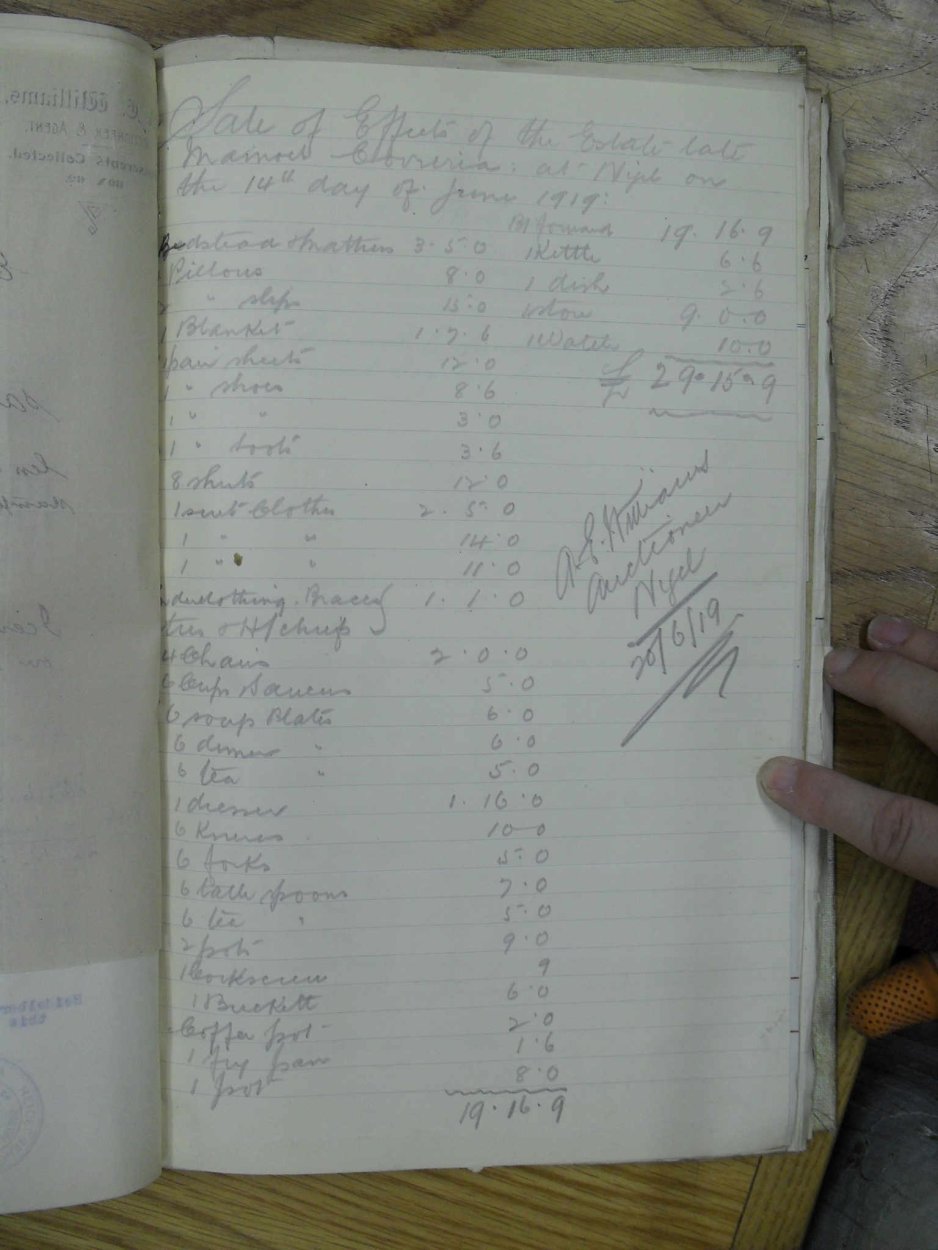 Sale of Effects of the Estate late
Manoel : at Nigel on
the 14th day of June 1919:
Bedstead & Mattress 3.5.0
Pillows 8.0
2 " slips 15.0
1 Blanket 1.7.6
1 pair sheets 12.0
1 " shoes 8.6
1 " " 3.0
1 " boots 3.6
8 shirts 12.0
1 suit Clothes 2.5.0
1 " " 14.0
1 " " 11.0
Underclothing. Braces } 1.1.0
ties & H/chiefs
4 Chairs 2.0.0
6 Cups Saucers 5.0
6 soup Plates 6.0
6 dinner " 6.0
6 tea " 5.0
1 dresser 1.16.0
6 Knives 10.0
6 forks 5.0
6 table spoons 7.0
6 tea " 5.0
2 pots 9.0
1 Corkscrew 9
1 Buckett 6.0
Coffee pot 2.0
1 fry pan 1.6
1 pot 8.0
19.16.9
B/forward 19.16.9
1 Kettle 6.6
1 dish 2.6
1 stove 9.0.0
1 Watch 10.0
29.15.9
A.E. Williams
Auctioneer
Nigel
20/6/19
Williams,
& AGENT.
Accounts Collected.